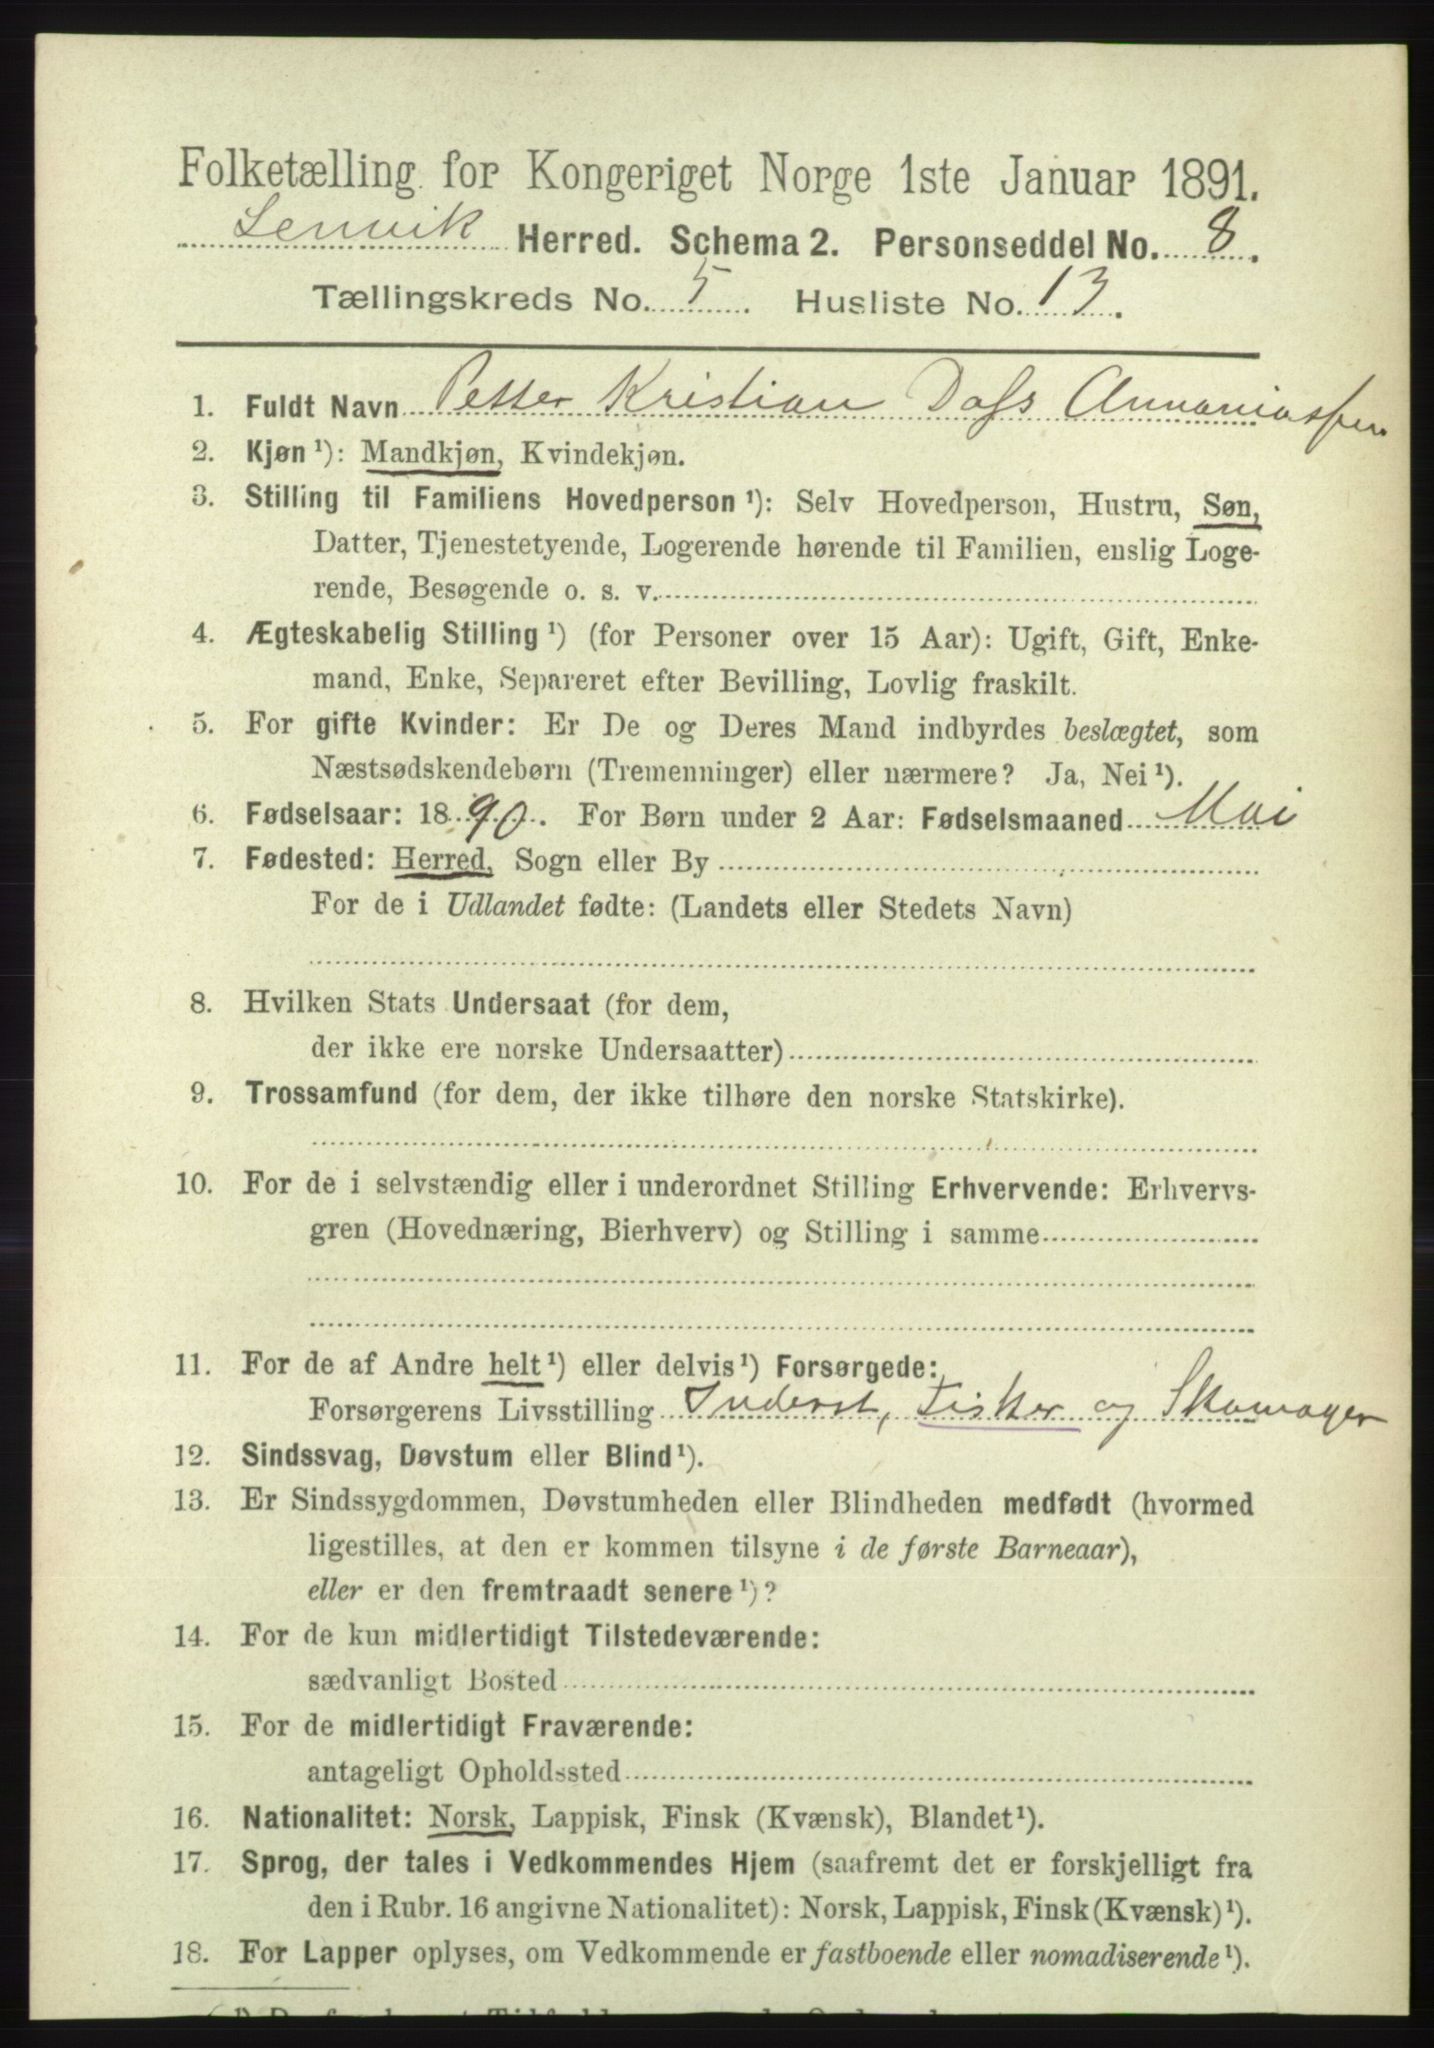 Folketælling for Kongeriget Norge 1ste Januar 1891.
Lenvik Herred. Schema 2. Personseddel No. 8.
Tællingskreds No. 5. Husliste No. 13.
1. Fuldt Navn Petter Kristian Dass Annaniassen
2. Kjøn ¹): Mandkjøn, Kvindekjøn.
3. Stilling til Familiens Hovedperson ¹): Selv Hovedperson, Hustru, Søn,
Datter, Tjenestetyende, Logerende hørende til Familien, enslig Loge-
rende, Besøgende o. s. v.
4. Ægteskabelig Stilling ¹) (for Personer over 15 Aar): Ugift, Gift, Enke-
mand, Enke, Separeret efter Bevilling, Lovlig fraskilt.
5. For gifte Kvinder: Er De og Deres Mand indbyrdes beslægtet, som
Næstsødskendebørn (Tremenninger) eller nærmere? Ja, Nei ¹).
6. Fødselsaar: 1890. For Børn under 2 Aar: Fødselsmaaned Mai
7. Fødested: Herred, Sogn eller By
For de i Udlandet fødte: (Landets eller Stedets Navn)
8. Hvilken Stats Undersaat (for dem,
der ikke ere norske Undersaatter)
9. Trossamfund (for dem, der ikke tilhøre den norske Statskirke).
10. For de i selvstændig eller i underordnet Stilling Erhvervende: Erhvervs-
gren (Hovednæring, Bierhverv) og Stilling i samme
11. For de af Andre helt ¹) eller delvis ¹) Forsørgede:
Forsørgerens Livsstilling Inderst, Fisker og Skomager
12. Sindssvag, Døvstum eller Blind ¹).
13. Er Sindssygdommen, Døvstumheden eller Blindheden medfødt (hvormed
ligestilles, at den er kommen tilsyne i de første Barneaar),
eller er den fremtraadt senere ¹)?
14. For de kun midlertidigt Tilstedeværende:
sædvanligt Bosted
15. For de midlertidigt Fraværende:
antageligt Opholdssted
16. Nationalitet: Norsk, Lappisk, Finsk (Kvænsk), Blandet ¹).
17. Sprog, der tales i Vedkommendes Hjem (saafremt det er forskjelligt fra
den i Rubr. 16 angivne Nationalitet): Norsk, Lappisk, Finsk (Kvænsk) ¹).
18. For Lapper oplyses, om Vedkommende er fastboende eller nomadiserende ¹).